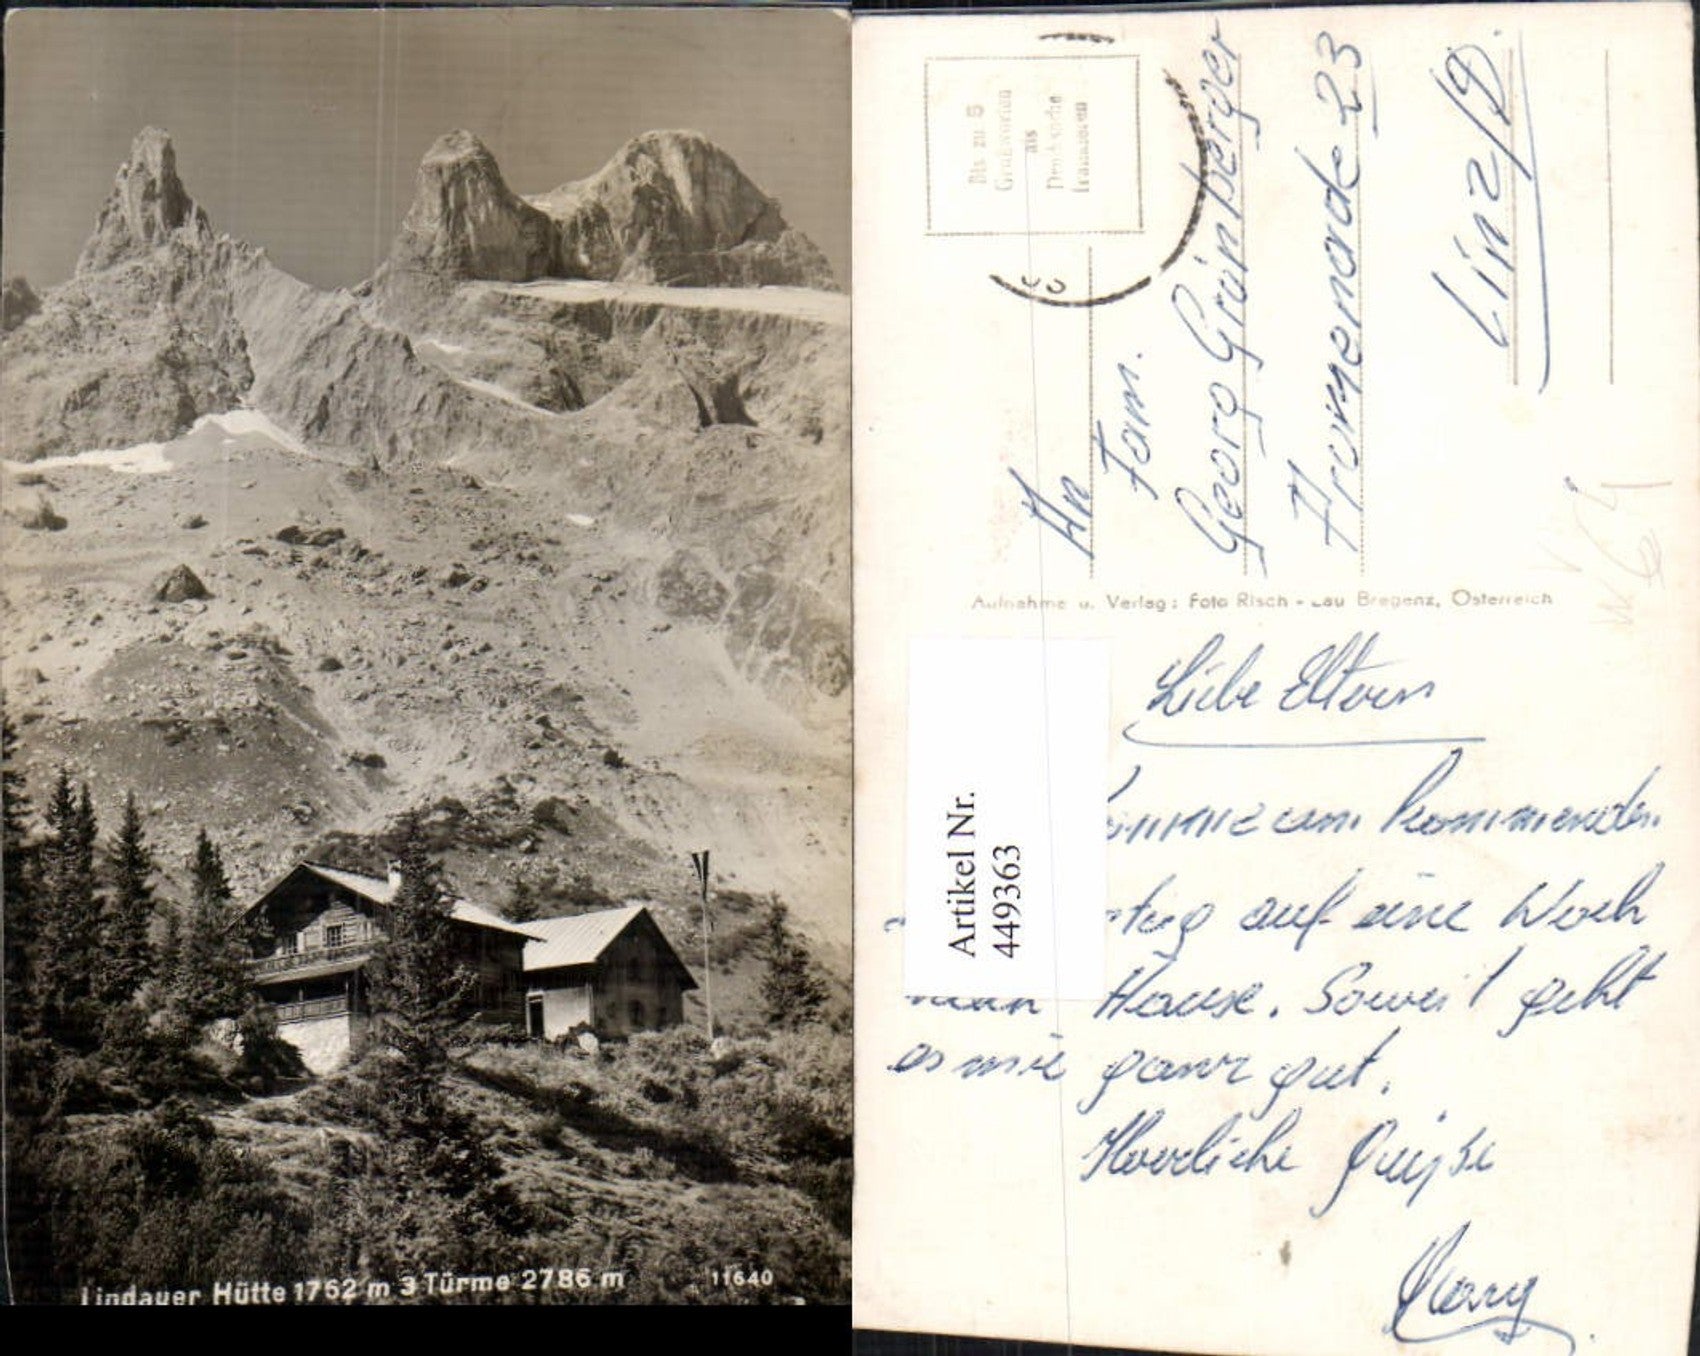 Lindauer Hütte 1762 m 3 Türme 2786 m 11640
Bis zu 5
als
An
Fam.
Georg Grünberger
Promenade 23
Linz/D.
Aufnahme u. Verlag: Foto Risch - Lau Bregenz, Österreich
Artikel Nr.
449363
Liebe Eltern
zum kommenden
auf eine Woch
nach Hause. Soweit geht
es mir ganz gut.
Herzliche Grüße
Georg